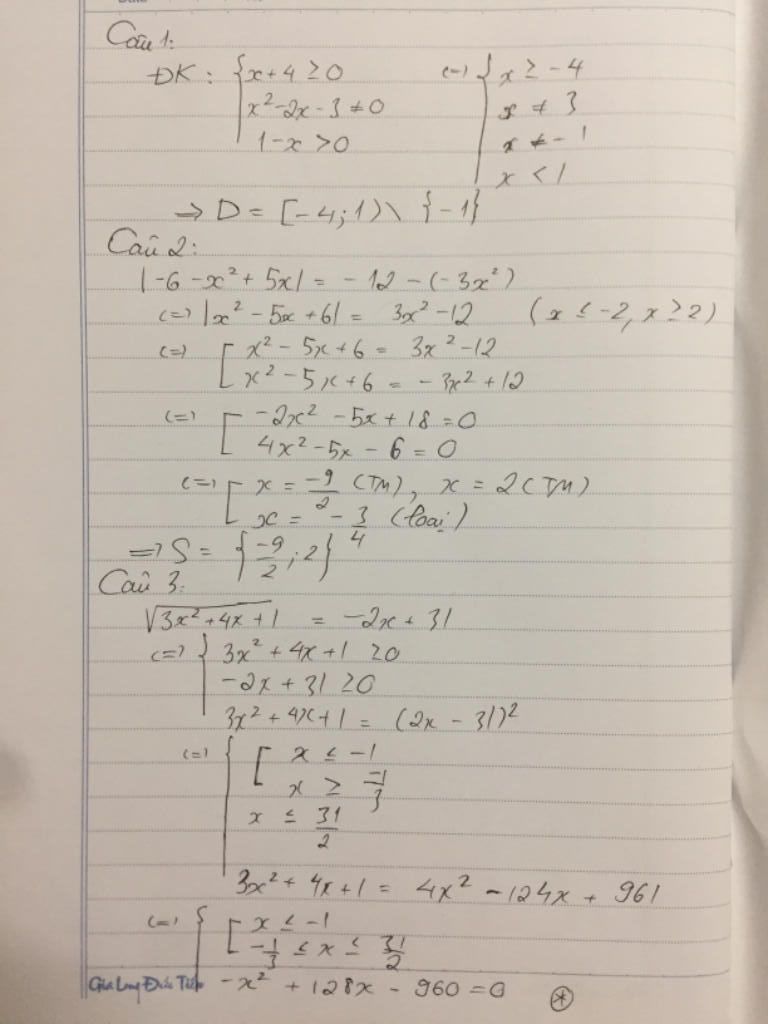 Câu 1:
ĐK: { x + 4 ≥ 0 (=) { x ≥ -4
x² - 2x - 3 ≠ 0 x ≠ 3
1 - x > 0 x ≠ -1
x < 1
=> D = [-4; 1) \ {-1}
Câu 2:
|-6 - x² + 5x| = -12 - (-3x²)
(=) |x² - 5x + 6| = 3x² - 12 (x ≤ -2, x ≥ 2)
(=) [ x² - 5x + 6 = 3x² - 12
x² - 5x + 6 = -3x² + 12
(=) [ -2x² - 5x + 18 = 0
4x² - 5x - 6 = 0
(=) [ x = -9/2 (TM), x = 2 (TM)
x = -3/4 (loại)
=> S = {-9/2; 2}
Câu 3:
√(3x² + 4x + 1) = -2x + 31
(=) { 3x² + 4x + 1 ≥ 0
-2x + 31 ≥ 0
3x² + 4x + 1 = (2x - 31)²
(=) { [ x ≤ -1
x ≥ -1/3
x ≤ 31/2
3x² + 4x + 1 = 4x² - 124x + 961
(=) { [ x ≤ -1
-1/3 ≤ x ≤ 31/2
-x² + 128x - 960 = 0 (*)
Gia Long Đức Tiến